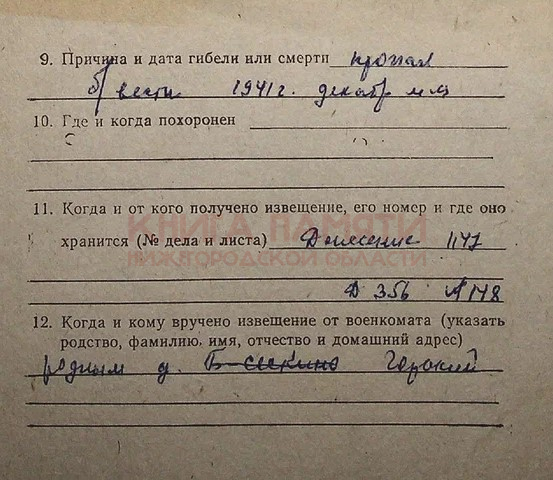 9. Причина и дата гибели или смерти пропал
б/вести 1941г. декабр м-ц
10. Где и когда похоронен
11. Когда и от кого получено извещение, его номер и где оно
КНИГА ПАМЯТИ
хранится (№ дела и листа) Донесение 1147
НИЖЕГОРОДСКОЙ ОБЛАСТИ
Д 356 Л 178
12. Когда и кому вручено извещение от военкомата (указать
родство, фамилию, имя, отчество и домашний адрес)
родным д. Горький